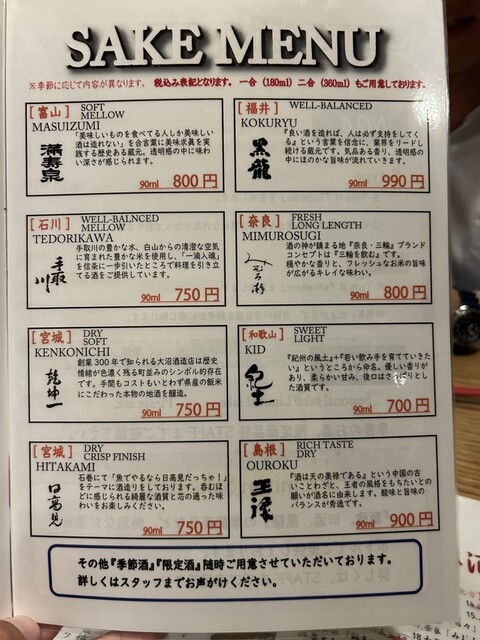 SAKE MENU
※季節に応じて内容が異なります。 税込み表記となります。 一合 (180ml) 二合 (360ml) もご用意しております。
[富山] SOFT
MELLOW
MASUIZUMI
満寿泉
「美味しいものを食べてる人しか美味しい
酒は造れない」を合言葉に美味求真を実
践する歴史ある蔵元。透明感の中に味わ
い深さが感じられます。
90ml 800円
[福井] WELL-BALANCED
KOKURYU
黒龍
「良い酒を造れば、人は必ず支持をしてく
る」という言葉を信念に、業界をリードし
続ける蔵元です。気品ある香り、透明感の
中にほのかな旨味が流れていきます。
90ml 990円
[石川] WELL-BALNCED
MELLOW
TEDORIKAWA
手取川
手取川の豊かな水、白山からの清澄な空気
に育まれた豊かな米を使用し、「一滴入魂」
を信条に一歩引いたところで料理を引き立
てる酒をご提供しています。
90ml 750円
[奈良] FRESH
LONG LENGTH
MIMUROSUGI
みむろ杉
酒の神が鎮まる地『奈良・三輪』ブランド
コンセプトは『三輪を飲む』です。
穏やかな香りと、フレッシュなお米の旨味
が広がるキレイな味わい。
90ml 800円
[宮城] DRY
SOFT
KENKONICHI
乾坤一
創業300年で知られる大沼酒造店は歴史
情緒が色濃く残る町並みのシンボル的存在
です。手間もコストもいとわず県産の飯米
にこだわった本物の地酒を醸造。
90ml 750円
[和歌山] SWEET
LIGHT
KID
紀土
『紀州の風土』+『若い飲み手を育てていきた
い』というところから命名。優しい香りが
あり、柔らかい甘み、後口はさっぱりとし
た酒質です。
90ml 700円
[宮城] DRY
CRISP FINISH
HITAKAMI
日高見
石巻にて「魚でやるなら日高見だっちゃ!」
をテーマに酒造りをしております。呑むほ
どに感じられる綺麗な酒質と芯の通った味
わいをお楽しみください。
90ml 750円
[島根] RICH TASTE
DRY
OUROKU
王祿
『酒は天の美禄である』という中国の古
いことわざと、王者の風格をもちたいとの
願いが酒名に由来します。酸味と旨味の
バランスが秀逸です。
90ml 900円
その他『季節酒』『限定酒』随時ご用意させていただいております。
詳しくはスタッフまでお声がけください。